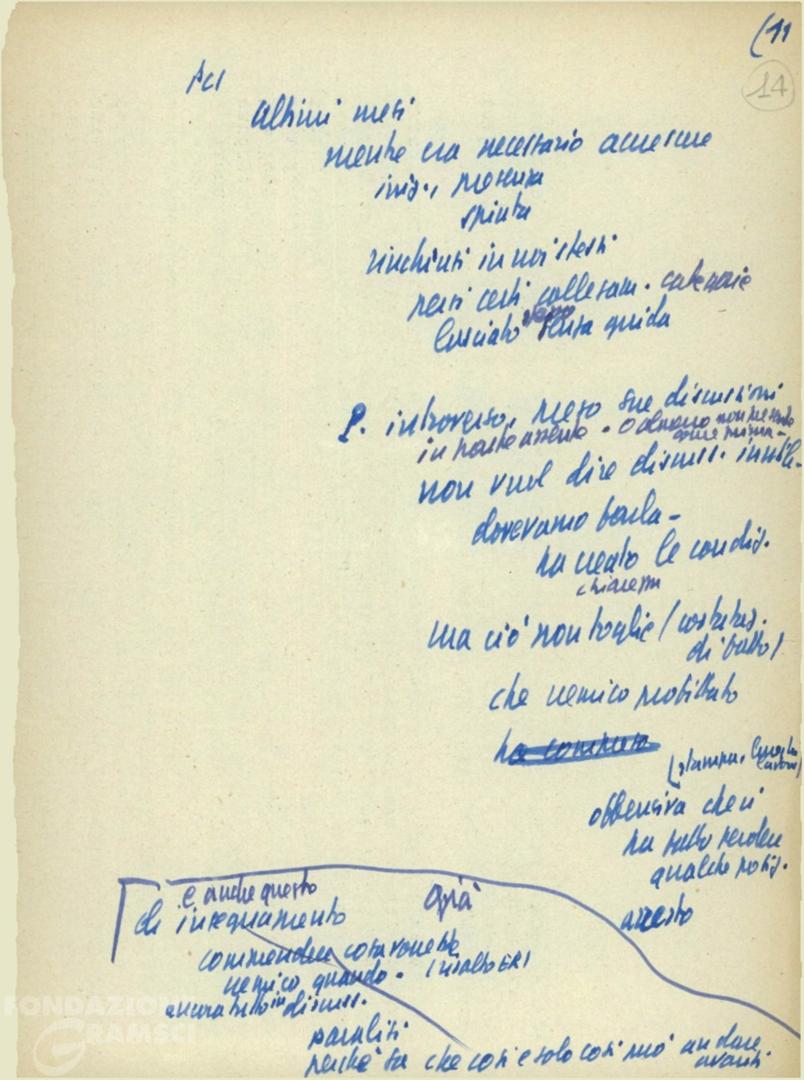 (11
14
PCI
Ultimi mesi
mentre era necessario accrescere
iniz., presenza
spinta
rinchiusi in noi stessi
persi certi collegam. categorie
lasciato senza guida
P. introverso, preso sue discussioni
in parte assente. non presente
come prima-
non vuol dire discuss. inutile-
dovevamo farla-
ha creato le condiz.
chiarezza
ma ciò non toglie (constataz.
di fatto)
che nemico mobilitato
ha
(stampa,
offensiva che ci
ha fatto perdere
qualche posiz.
arresto
e anche questo già
di insegnamento
comprendere cosa
nemico quando.
ancora in discuss.
paralisi
perché sa che così e solo così può andare
avanti.
FONDAZIONE
GRAMSCI